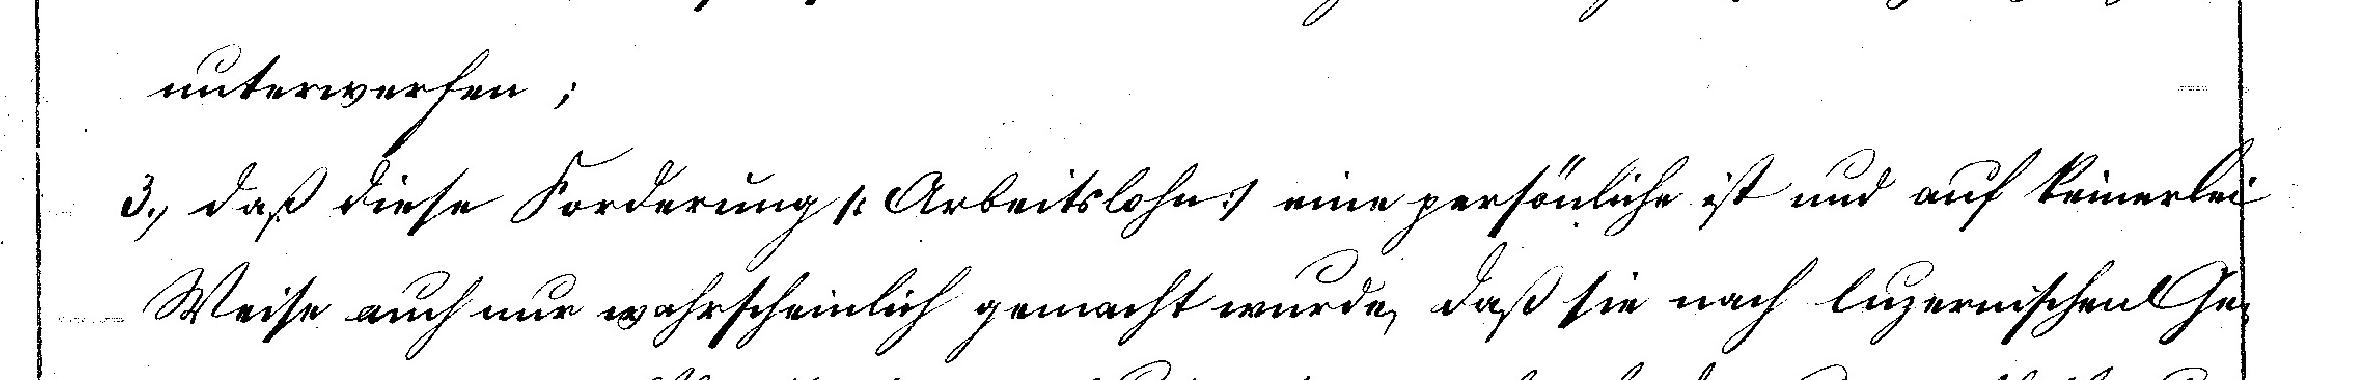 unterwerfen ;
3., daß diese Forderung /: Arbeitslohn :/ eine persönliche ist und auf keinerlei
Weise auch nur wahrscheinlich gemacht wurde, daß sie nach luzernischen Ge-